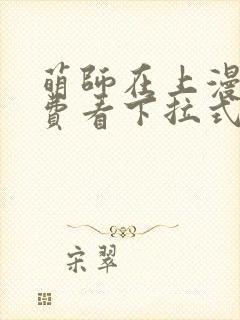 萌师在上漫
费看下拉式
宋翠